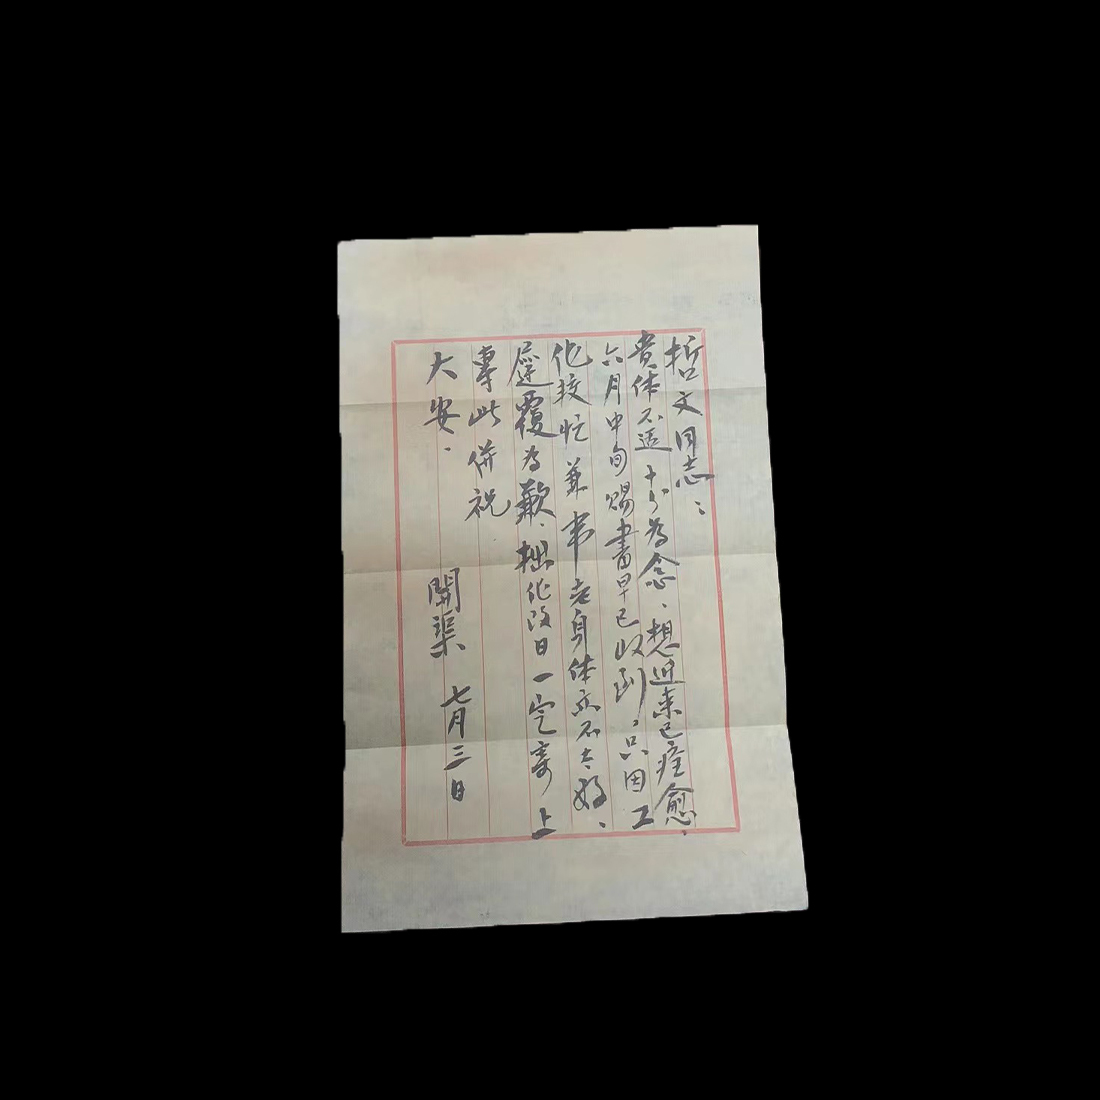 哲文同志：
貴体不适十分為念、想近来已痊愈.
六月中旬赐書早已收到,只因工
作較忙兼老身体亦不太好、
遲覆为歉、拙作改日一定寄上
專此併祝
大安. 開渠 七月三日